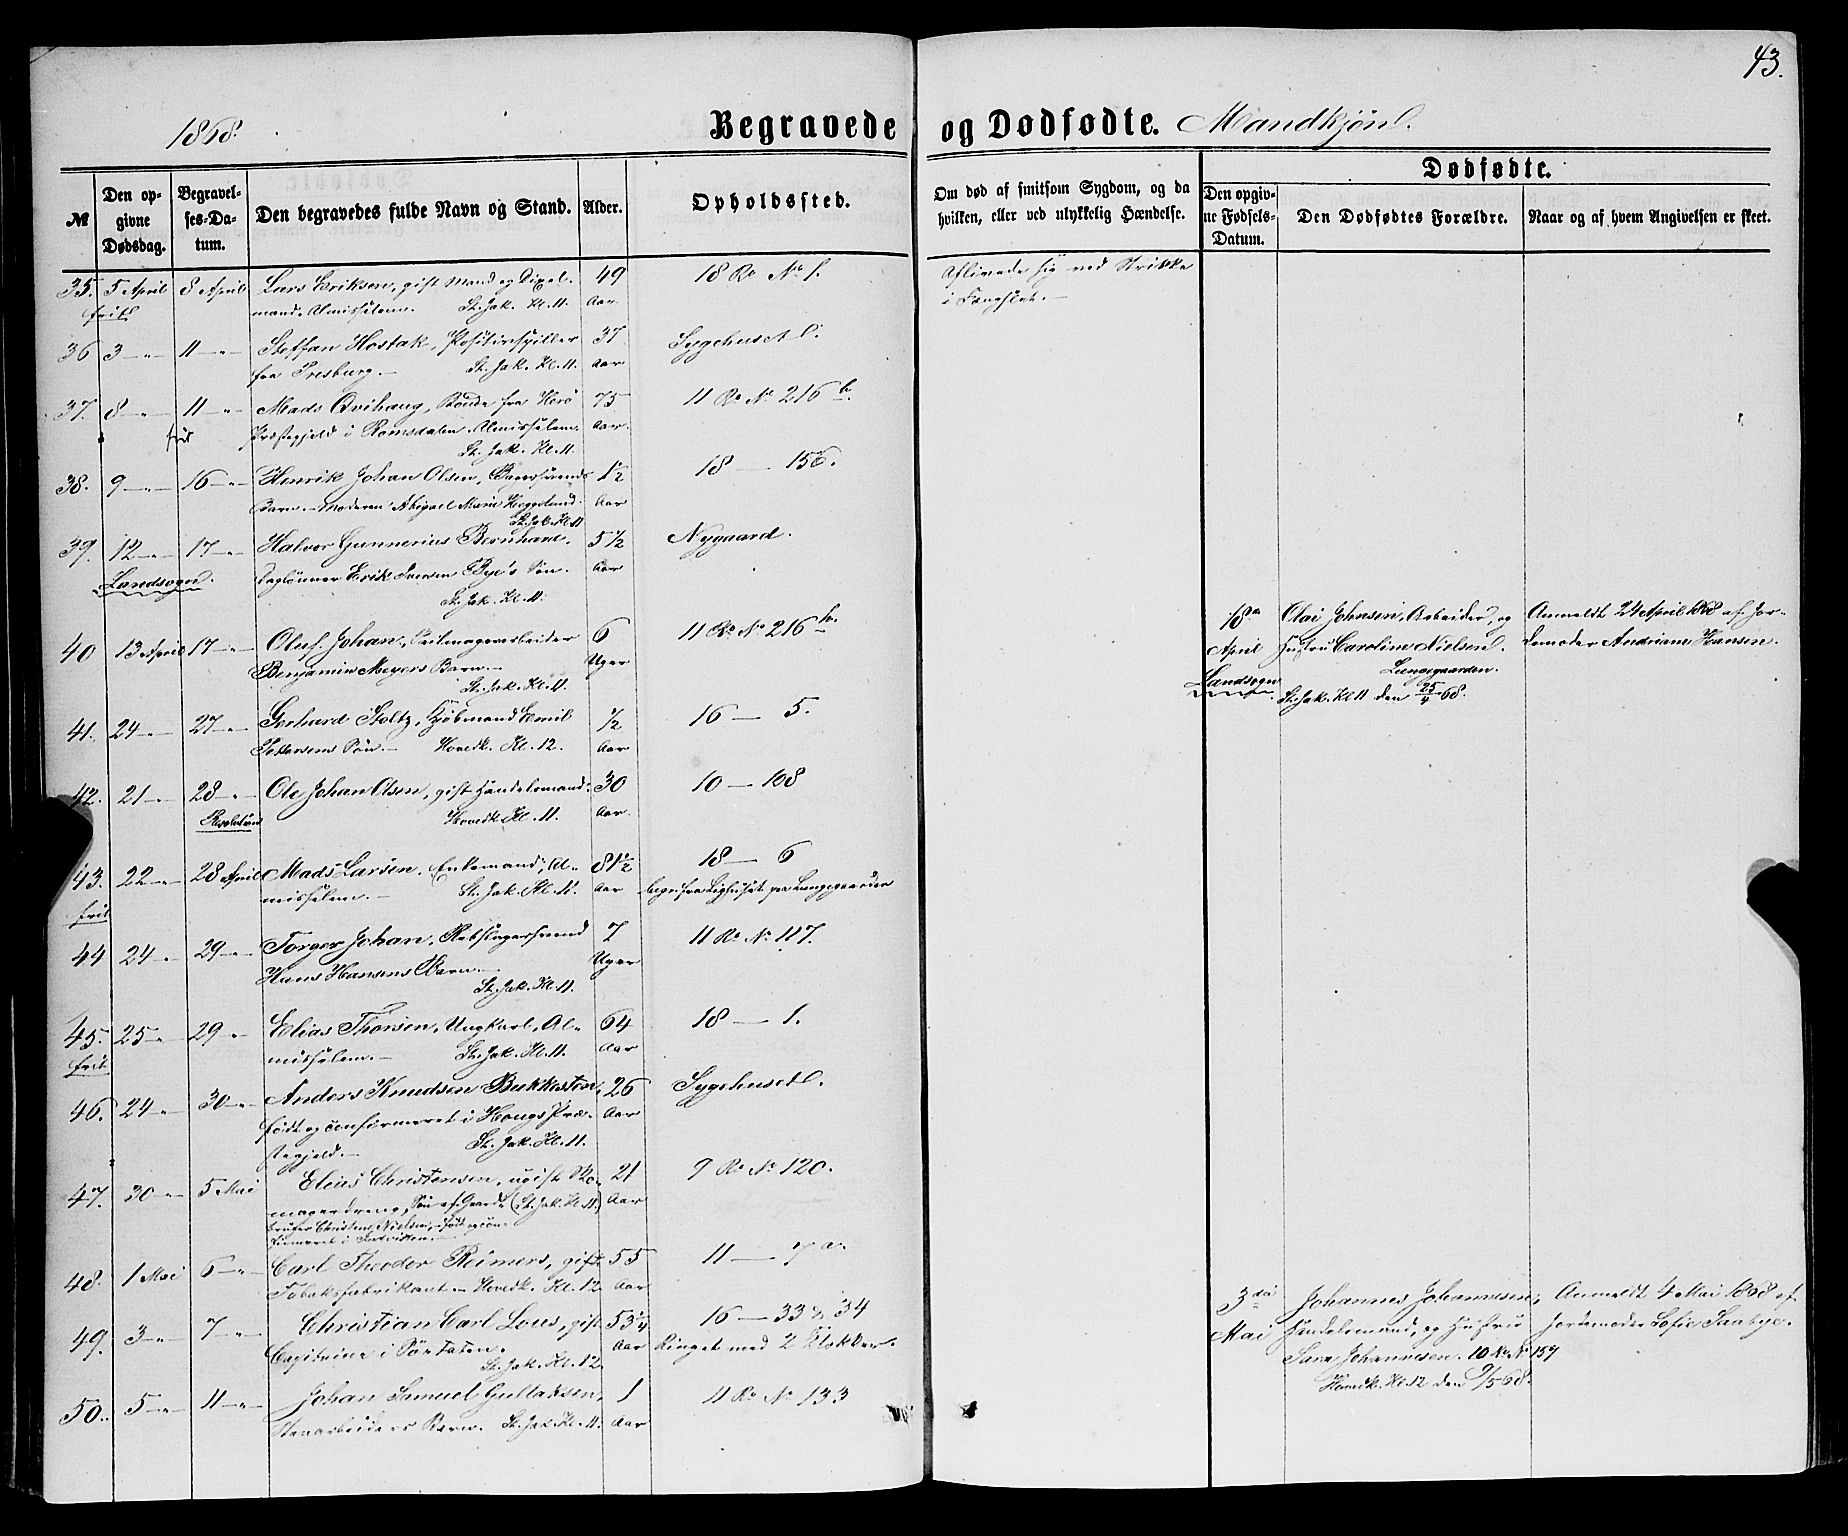 43.
1868.
Begravede og Dødfødte. Mandkjøn.
№
Den opgivne Dødsdag.
Begravelses-Datum.
Den begravedes fulde Navn og Stand.
Alder.
Opholdssted.
Om død af smitsom Sygdom, og da hvilken, eller ved ulykkelig Hændelse.
Dødfødte.
Den opgivne Fødsels-Datum.
Den Dødfødtes Forældre.
Naar og af hvem Angivelsen er skeet.
35. 5 April 8 April Lars Eriksen, gift Mand og 49 18 Ro No 1. Aflivede sig ved Strikke
frit Almisselem. St. Jak. Kl. 11. Aar i Fængslet.
36 3 -"- 11 -"- Steffan Hostak, Positivspiller 37 Sygehuset
fra Presburg. St. Jak. Kl. 11. Aar
37. 8 -"- 11 -"- Mads Qvihaug, Bonde fra Herø 75 11 Ro No 216 b.
frit Præstegjeld i Romsdalen, Almisselem. Aar.
St. Jak. Kl. 11.
38. 9 -"- 16 -"- Henrik Johan Olsen, 1½ 18 — 156.
Barn. Moderen Abigael Marie Aar
St. Jak. Kl. 11
39. 12 -"- 17 -"- Halvor Gunnerius Bernhard, 5 1/2 Nygaard.
Landsogn. Daglønner Erik Iversen Bye's Søn. Aar
St. Jak. Kl. 11.
40 13 April 17 -"- Oluf Johan, Seilmagerarbeider 6 11 Ro No 216 b.
Benjamin Meyers Barn. Uger
St. Jak. Kl. 11.
18de April Olai Johnsen, Arbeider, og Anmeldt 24 April 1868 af Jor-
Landsogn Hustru Caroline Nielsen. demoder Andriane Hansen.
Lungegaarden.
St. Jak. Kl 11 den 25/4 68.
41. 24 -"- 27 -"- Gerhard Stoltz, Kjøbmand Emil 1/2 16 — 5.
Pettersens Søn. Hovedk. Kl. 12. Aar
42. 21 -"- 28 -"- Ole Johan Olsen, gift Handelsmand. 30 10 — 108
Hovedk. Kl. 11. Aar.
43. 22 -"- 28 April Mads Larsen, Enkemand, Al- 81½ 18 — 6
frit misselem. St. Jak. Kl. 11. Aar begr. fra Lighuset paa Lungegaarden
44 24 -"- 29 -"- Torger Johan, Rebslagersvend 7 11 Ro No 117.
Hans Hansens Barn. Uger
St. Jak. Kl. 11.
45. 25 -"- 29 -"- Elias Thorsen, Ungkarl, Al- 64 18 — 1.
frit misselem. St. Jak. Kl. 11. Aar
46. 24 -"- 30 -"- Anders Knudsen Bukkesten, 26 Sygehuset
født og confirmeret i Hougs Præ- Aar
stegjeld. St. Jak. Kl. 11.
47. 30 -"- 5 Mai Elias Christensen, ugift 21 9 Ro No 120.
Søn af Gaard- (St. Jak. Kl. 11) Aar
bruger Christen Nielsen, født og con-
firmeret i Indviken.
48. 1 Mai 6 -"- Carl Theodor Reimers, gift 55 11 — 7 a.
Tobaksfabrikant. Hovedk. Kl. 12 Aar
49. 3 -"- 7 -"- Christian Carl Lous, gift 53¼ 16 — 33 & 34
Capitaine i Søetaten. Aar Ringet med 2 Klokker.
St. Jak. Kl. 12
3die Mai Johannes Johannesen, Anmeldt 4 Mai 1868 af
Handelsmand, og Hustru Jordemoder Sofie Saabye.
Sara Johannesen. 10 Ro No 157
Hovedk. Kl. 12 den 9/5 68.
50. 5 -"- 11 -"- Johan Samuel Gullaksen, 1 11 Ro No 133
Stenarbeiders Barn. St. Jak. Kl. 11. Aar